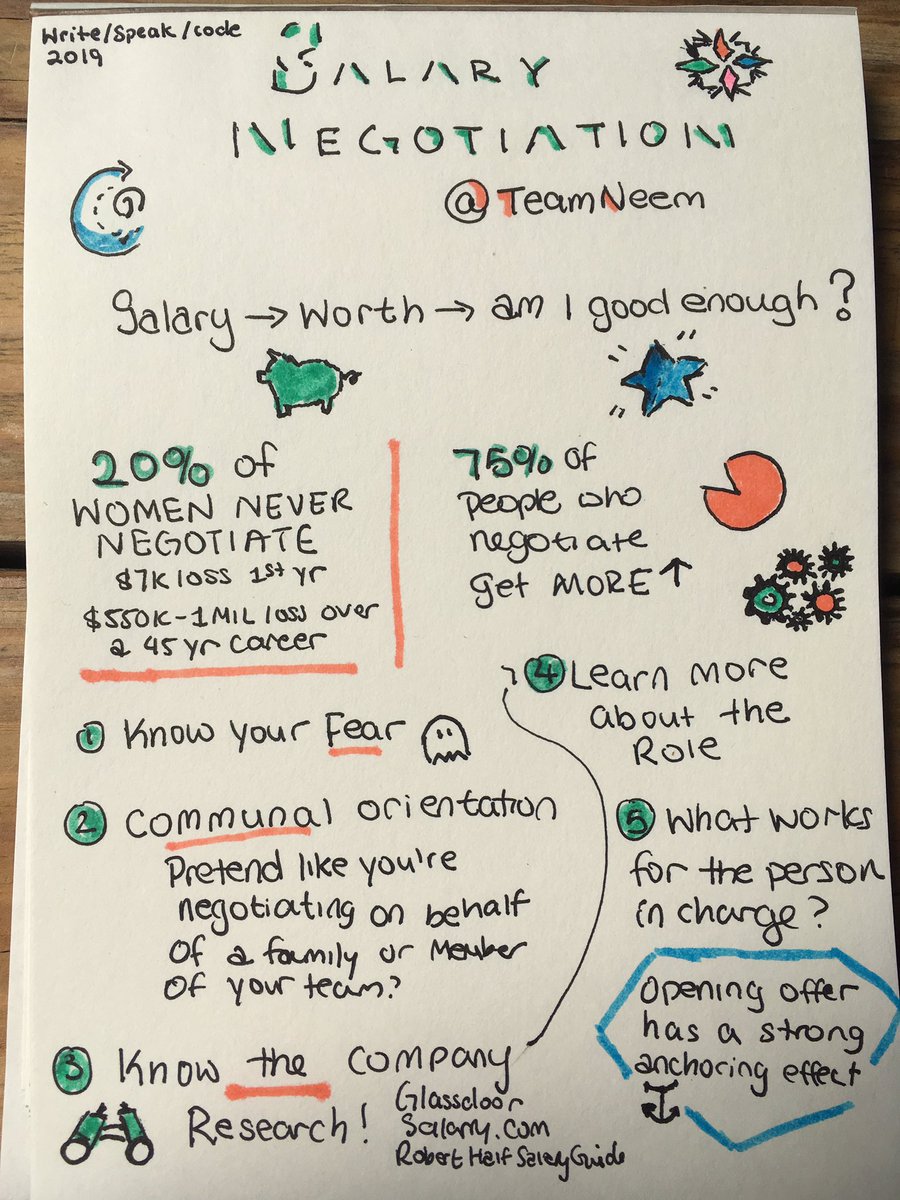 Write/Speak/code
2019
SALARY
NEGOTIATION
@TeamNeem
Salary → Worth → am I good enough?
20% of
WOMEN NEVER
NEGOTIATE
$7K loss 1st yr
$550K-1MIL loss over
a 45 yr career
75% of
people who
negotiate
get MORE ↑
1 Know your Fear
2 Communal orientation
Pretend like you're
negotiating on behalf
Of a family or Member
Of your team?
3 Know the company
Research!
Glassdoor
Salarry.com
Robert Half Salary Guide
4 Learn More
about the
Role
5 What works
for the person
in charge?
Opening offer
has a strong
anchoring effect